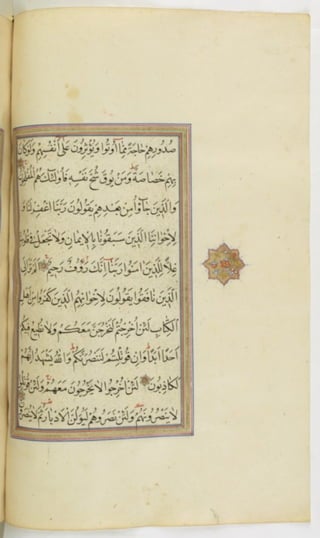 صُدُورِهِمْ حَاجَةً مِمَّا أُوتُوا وَيُؤْثِرُونَ عَلَى أَنْفُسِهِمْ وَلَوْ كَانَ
بِهِمْ خَصَاصَةٌ وَمَنْ يُوقَ شُحَّ نَفْسِهِ فَأُولَئِكَ هُمُ الْمُفْلِحُونَ
وَالَّذِينَ جَاؤُا مِنْ بَعْدِهِمْ يَقُولُونَ رَبَّنَا اغْفِرْ لَنَا وَ
لِإِخْوَانِنَا الَّذِينَ سَبَقُونَا بِالْإِيمَانِ وَلَا تَجْعَلْ فِي قُلُوبِنَا
غِلًّا لِلَّذِينَ آمَنُوا رَبَّنَا إِنَّكَ رَؤُفٌ رَحِيمٌ أَلَمْ تَرَ إِلَى
الَّذِينَ نَافَقُوا يَقُولُونَ لِإِخْوَانِهِمُ الَّذِينَ كَفَرُوا مِنْ أَهْلِ
الْكِتَابِ لَئِنْ أُخْرِجْتُمْ لَنَخْرُجَنَّ مَعَكُمْ وَلَا نُطِيعُ فِيكُمْ
أَحَدًا أَبَدًا وَإِنْ قُوتِلْتُمْ لَنَنْصُرَنَّكُمْ وَاللَّهُ يَشْهَدُ إِنَّهُمْ
لَكَاذِبُونَ لَئِنْ أُخْرِجُوا لَا يَخْرُجُونَ مَعَهُمْ وَلَئِنْ قُوتِلُوا
لَا يَنْصُرُونَهُمْ وَلَئِنْ نَصَرُوهُمْ لَيُوَلُّنَّ الْأَدْبَارَ ثُمَّ لَا يُنْصَرُونَ